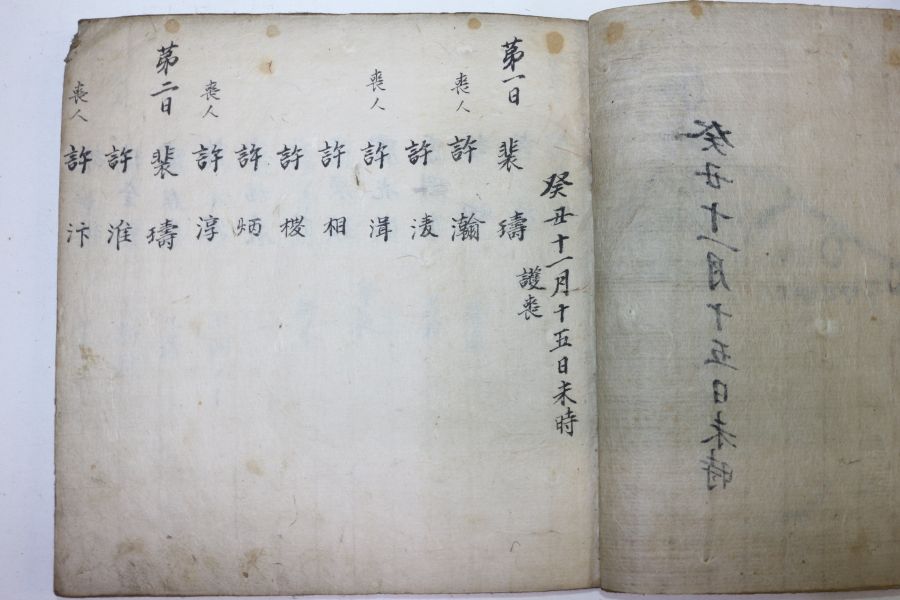 癸丑十一月十五日未時
護喪
第一日 裴 璹
喪人 許 瀚
許 淩
喪人 許 渳
許 相
許 㮨
許 炳
喪人 許 淳
第二日 裴 璹
許 淮
喪人 許 汴
癸丑十一月十五日未時